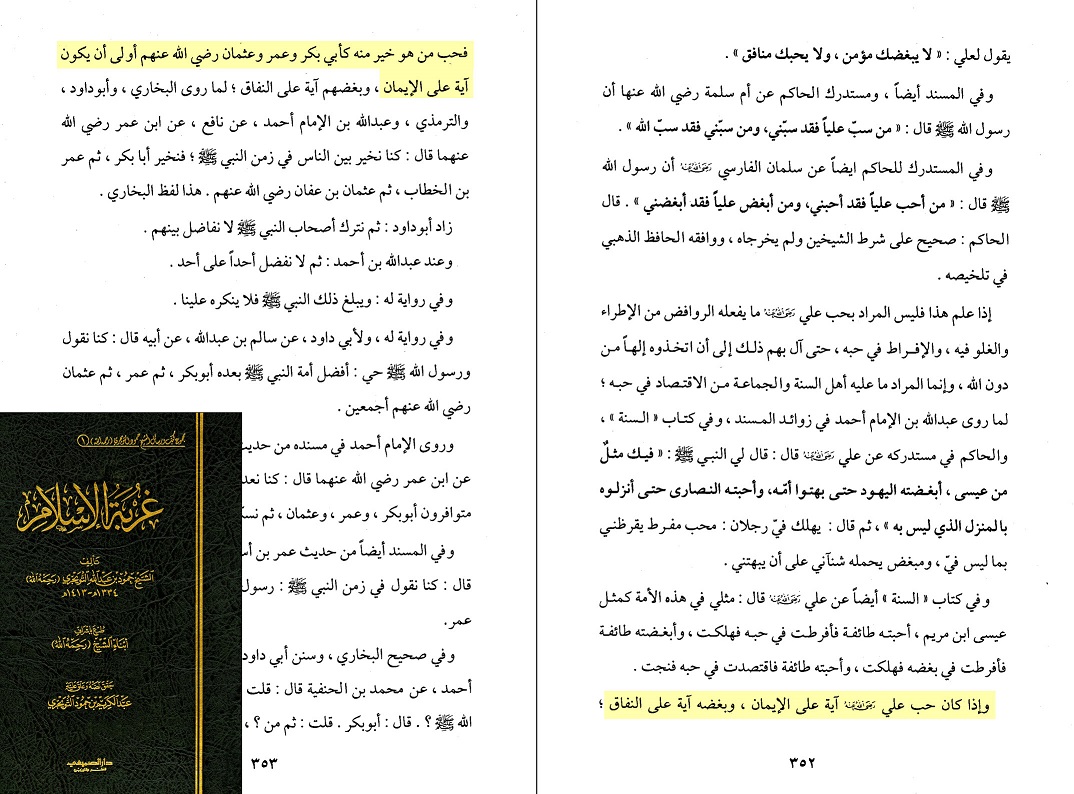 يقول لعلي : « لا يبغضك مؤمن ، ولا يحبك منافق » .
وفي المسند أيضاً ، ومستدرك الحاكم عن أم سلمة رضي الله عنها أن
رسول الله ﷺ قال : « من سبّ علياً فقد سبّني، ومن سبّني فقد سبّ الله » .
وفي المستدرك للحاكم ايضاً عن سلمان الفارسي رضي الله عنه أن رسول الله
ﷺ قال : « من أحب علياً فقد أحبني، ومن أبغض علياً فقد أبغضني » . قال
الحاكم : صحيح على شرط الشيخين ولم يخرجاه ، ووافقه الحافظ الذهبي
في تلخيصه .
إذا علم هذا فليس المراد بحب علي رضي الله عنه ما يفعله الروافض من الإطراء
والغلو فيه ، والإفراط في حبه ، حتى آل بهم ذلك إلى أن اتخذوه إلهاً من
دون الله ، وإنما المراد ما عليه أهل السنة والجماعة من الاقتصاد في حبه ؛
لما روى عبدالله بن الإمام أحمد في زوائد المسند ، وفي كتاب « السنة » ،
والحاكم في مستدركه عن علي رضي الله عنه قال : قال لي النبي ﷺ : « فيك مثلٌ
من عيسى ، أبغضته اليهود حتى بهتوا أمّه، وأحبته النصارى حتى أنزلوه
بالمنزل الذي ليس به » ، ثم قال : يهلك فيّ رجلان : محب مفرط يقرظني
بما ليس فيّ ، ومبغض يحمله شنآني على أن يبهتني .
وفي كتاب « السنة » أيضاً عن علي رضي الله عنه قال : مثلي في هذه الأمة كمثل
عيسى ابن مريم ، أحبته طائفة فأفرطت في حبه فهلكت ، وأبغضته طائفة
فأفرطت في بغضه فهلكت ، وأحبته طائفة فاقتصدت في حبه فنجت .
وإذا كان حب علي رضي الله عنه آية على الإيمان ، وبغضه آية على النفاق ؛
٣٥٢
فحب من هو خير منه كأبي بكر وعمر وعثمان رضي الله عنهم أولى أن يكون
آية على الإيمان ، وبغضهم آية على النفاق ؛ لما روى البخاري ، وأبوداود ،
والترمذي ، وعبدالله بن الإمام أحمد ، عن نافع ، عن ابن عمر رضي الله
عنهما قال : كنا نخير بين الناس في زمن النبي ﷺ ؛ فنخير أبا بكر ، ثم عمر
بن الخطاب ، ثم عثمان بن عفان رضي الله عنهم . هذا لفظ البخاري .
زاد أبوداود : ثم نترك أصحاب النبي ﷺ لا نفاضل بينهم .
وعند عبدالله بن أحمد : ثم لا نفضل أحداً على أحد .
وفي رواية له : ويبلغ ذلك النبي ﷺ فلا ينكره علينا .
وفي رواية له ، ولأبي داود ، عن سالم بن عبدالله ، عن أبيه قال : كنا نقول
ورسول الله ﷺ حي : أفضل أمة النبي ﷺ بعده أبوبكر ، ثم عمر ، ثم عثمان
رضي الله عنهم أجمعين .
وروى الإمام أحمد في مسنده من حديث
عن ابن عمر رضي الله عنهما قال : كنا نعد
متوافرون أبوبكر ، وعمر ، وعثمان ، ثم نسك
وفي المسند أيضاً من حديث عمر بن أس
قال : كنا نقول في زمن النبي ﷺ : رسول
عمر.
وفي صحيح البخاري ، وسنن أبي داود
أحمد ، عن محمد بن الحنفية قال : قلت
الله ﷺ ؟ . قال : أبوبكر . قلت : ثم من ؟ ،
٣٥٣
مجموع كتب ورسائل الشيخ حمود التويجري (رحمه الله) (١)
غربة الإسلام
تأليف
الشيخ حمود بن عبدالله التويجري (رحمه الله)
١٣٣٤هـ-١٤١٣هـ
طبع بإشراف
أبناء الشيخ (رحمه الله)
حقق نصه وعلق عليه
عبدالكريم بن حمود التويجري
دار الصميعي